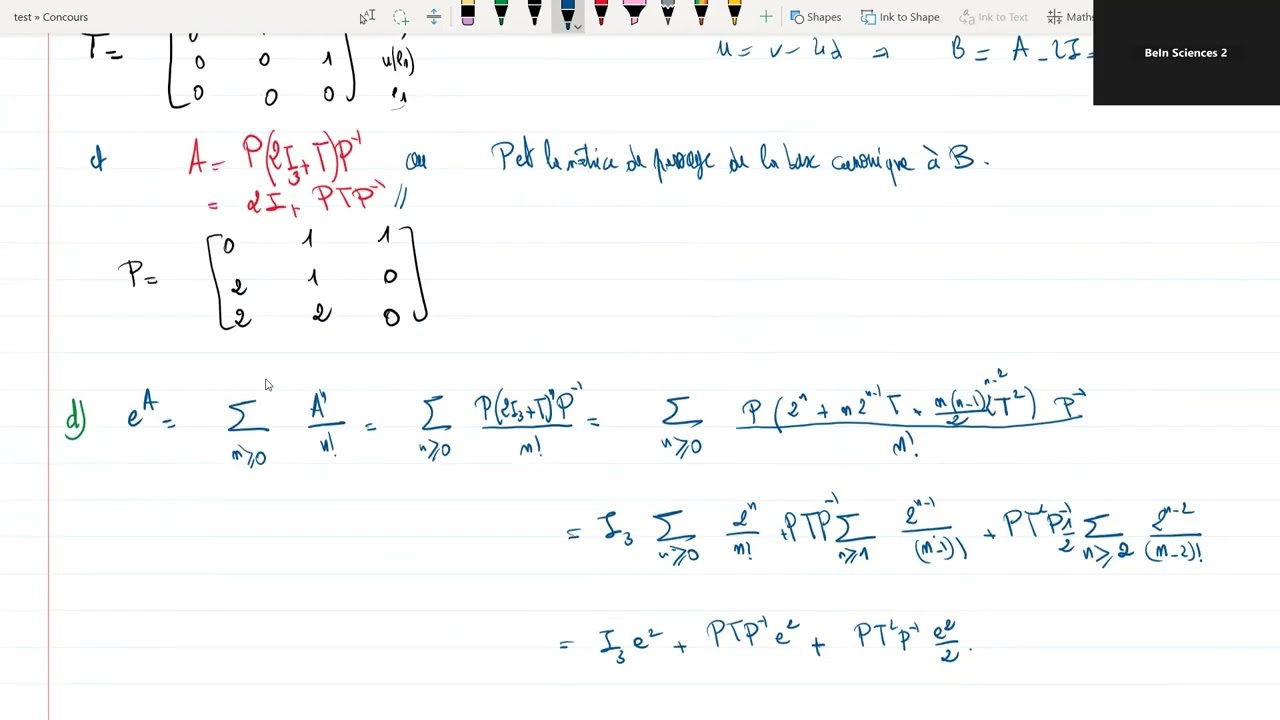 test » Concours
Shapes Ink to Shape Ink to Text Maths
BeIn Sciences 2
T=
0 0 1 u(e₁)
0 0 0 e₁
u = v - 2Id ⇒ B = A - 2I =
et A = P(2I₃+T)P⁻¹ ou P est la matrice de passage de la base canonique à B.
= 2I + PTP⁻¹ //
P=
0 1 1
2 1 0
2 2 0
d) e^A = ∑_{n≥0} A^n/n! = ∑_{n≥0} P(2I₃+T)^n P⁻¹/n! = ∑_{n≥0} P(2^n + n2^{n-1}T + n(n-1)/2 2^{n-2}(T²))P⁻¹/n!
= I₃ ∑_{n≥0} 2^n/n! + PTP⁻¹ ∑_{n≥1} 2^{n-1}/(n-1)! + PT²P⁻¹ 1/2 ∑_{n≥2} 2^{n-2}/(n-2)!
= I₃e² + PTP⁻¹e² + PT²P⁻¹ e²/2.